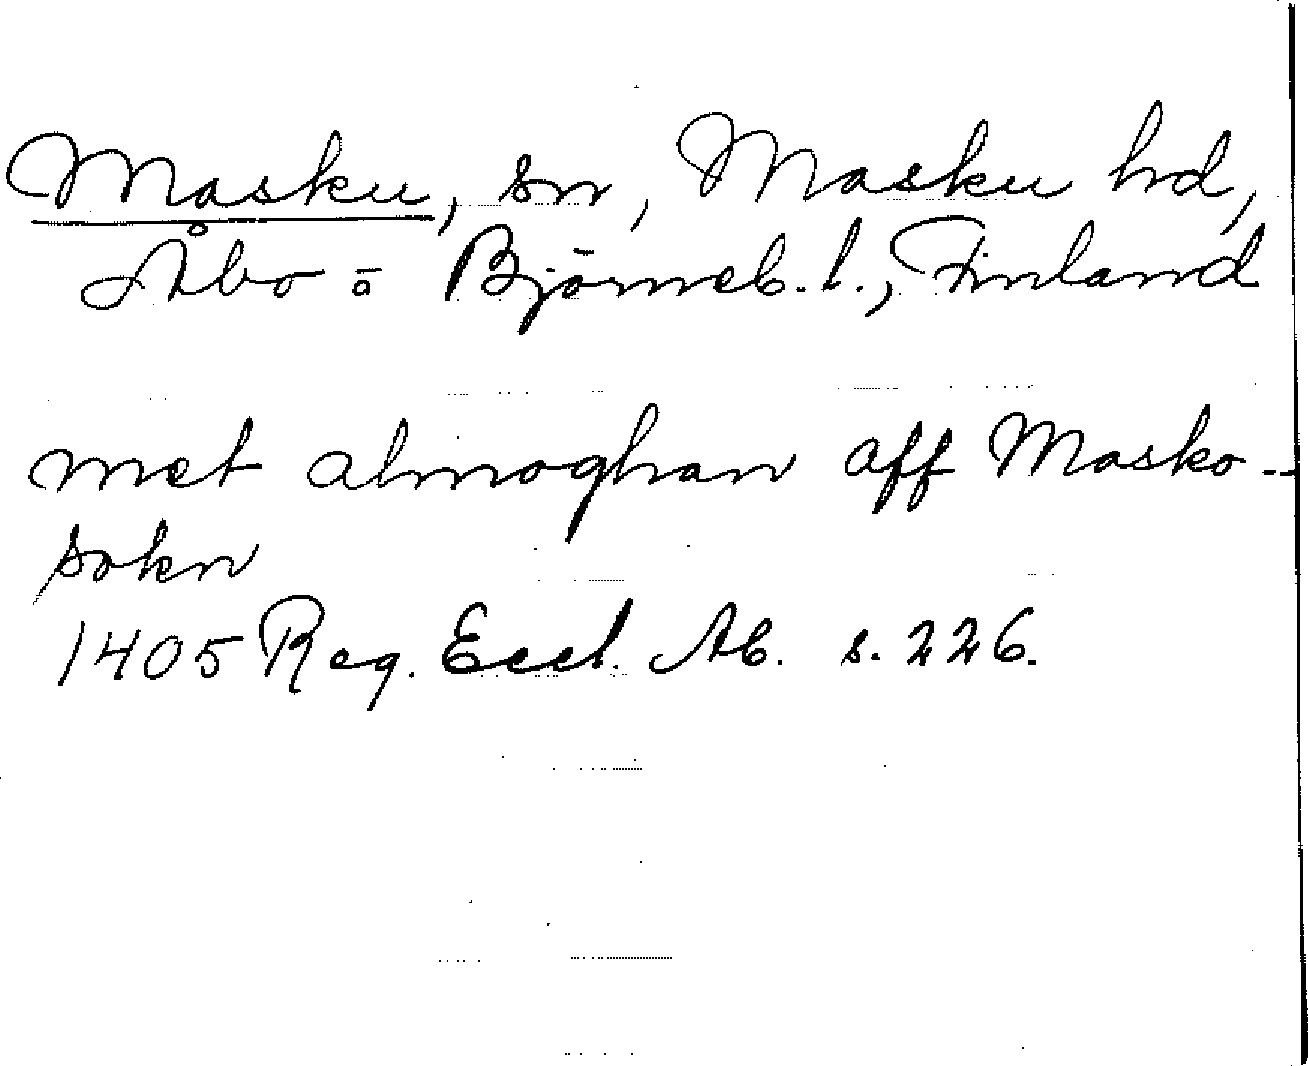 Masku, sn, Masku hd,
Åbo o. Björneb. l., Finland
met almoghan aff Masko-
sokn
1405 Reg. Eccl. Ab. s. 226.